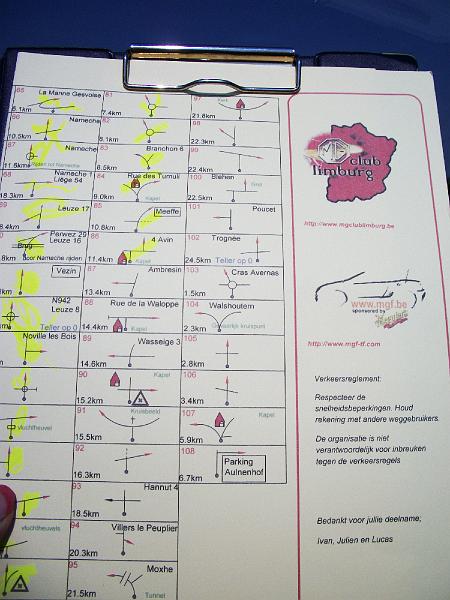 85
La Manne Gesvoise
6.1km
86
Nameche
10.5km
87
Nameche
11.6km
Rijden tot Nameche
88
Nameche 1
Liège 54
18.3km
89
Leuze 17
8.4km
90
Perwez 29
Leuze 16
Brug
.8km
door Nameche rijden
Vezin
N942
Leuze 8
Teller op 0
Noville les Bois
vluchtheuvel
vluchtheuvels
81
7.4km
82
8.1km
83
Branchon 6
8.5km
84
Rue des Tumuli
9.0km
Kapel
85
Meeffe
10.8km
86
4 Avin
11.4km
Kapel
87
Ambresin
13.4km
88
Rue de la Waloppe
14.4km
Kapel
89
Wasseige 3
14.6km
90
Kapel
15.2km
91
Kruisbeeld
15.5km
92
16.3km
93
Hannut 4
18.5km
94
Villers le Peuplier
20.3km
95
Moxhe
21.5km
Tunnel
97
Kerk
21.8km
98
22.3km
99
22.4km
100
Blehen
22.5km
101
Poucet
102
Trognée
24.5km
Teller op 0
103
Cras Avernas
1.5km
104
Walshoutem
2.3km
Gevaarlijk kruispunt
105
2.8km
106
3.4km
107
Kapel
5.9km
108
6.7km
Parking
Aulnenhof
MG
club
limburg
http://www.mgclublimburg.be
www.mgf.be
sponsored by
http://www.mgf-tf.com
Verkeersreglement:
Respecteer de
snelheidsbeperkingen. Houd
rekening met andere weggebruikers.
De organisatie is niet
verantwoordelijk voor inbreuken
tegen de verkeersregels
Bedankt voor jullie deelname;
Ivan, Julien en Lucas